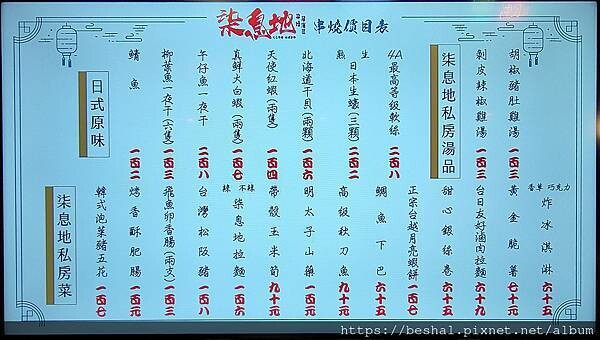 柒息地 串燒價目表
柒息地私房湯品
胡椒豬肚雞湯 一五三
剝皮辣椒雞湯 一五三
日式原味
4A最高等級軟絲 二0八
生 熟 日本生蠔(三顆) 二0二
北海道干貝(兩顆) 一0六
天使紅蝦(兩隻) 一0四
真鮮大白蝦(兩隻) 一0七
午仔魚一夜干 二0八
柳葉魚一夜干(六隻) 一0三
鯖魚 一0二
柒息地私房菜
香草 巧克力 炸冰淇淋 六十五
黃金脆薯 七十元
台日友好滷肉拉麵 六十九
甜心銀絲卷 六十五
正宗台越月亮蝦餅 一0七
鯛魚下巴 六十五
高級秋刀魚 九十元
明太子山藥 一0七
帶殼玉米筍 九十元
辣 不辣 柒息地拉麵 一0六
台灣松阪豬 一0八
飛魚卵香腸(兩支) 一0三
烤香酥肥腸 一百元
韓式泡菜豬五花 一0七
https://beshal.pixnet.net/album